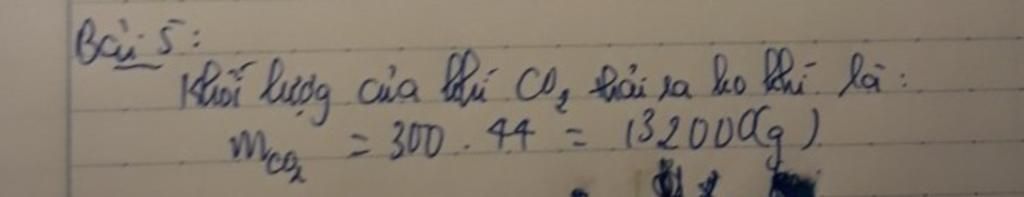 Bài 5:
Khối lượng của khí CO₂ thải ra ko khí là:
m_CO₂ = 300 . 44 = 13200 (g)